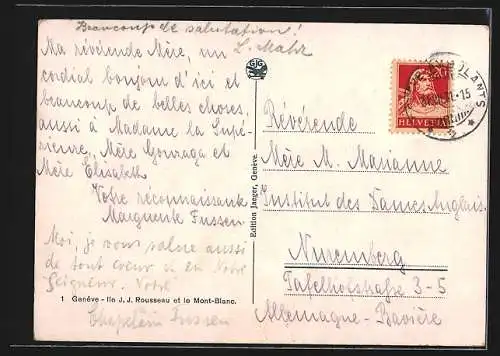 Beaucoup de salutation!
L. Mahr
Ma révérende Mère, un
cordial bonjour d'ici et
beaucoup de belles choses,
aussi à Madame la Supé-
rieure, Mère Gonzaga et
Mère Elisabeth
Votre reconnaissante
Marguerite Fussen
Moi, je vous salue aussi
de tout cœur et en Notre
Seigneur. Votre
Chapelain Fussen
1 Genève - Ile J. J. Rousseau et le Mont-Blanc.
Edition Jaeger, Genève.
HELVETIA
Révérende
Mère M. Marianne
Institut des Dames Anglais.
Nuremberg
Tafelhofstraße 3-5
Allemagne-Bavière